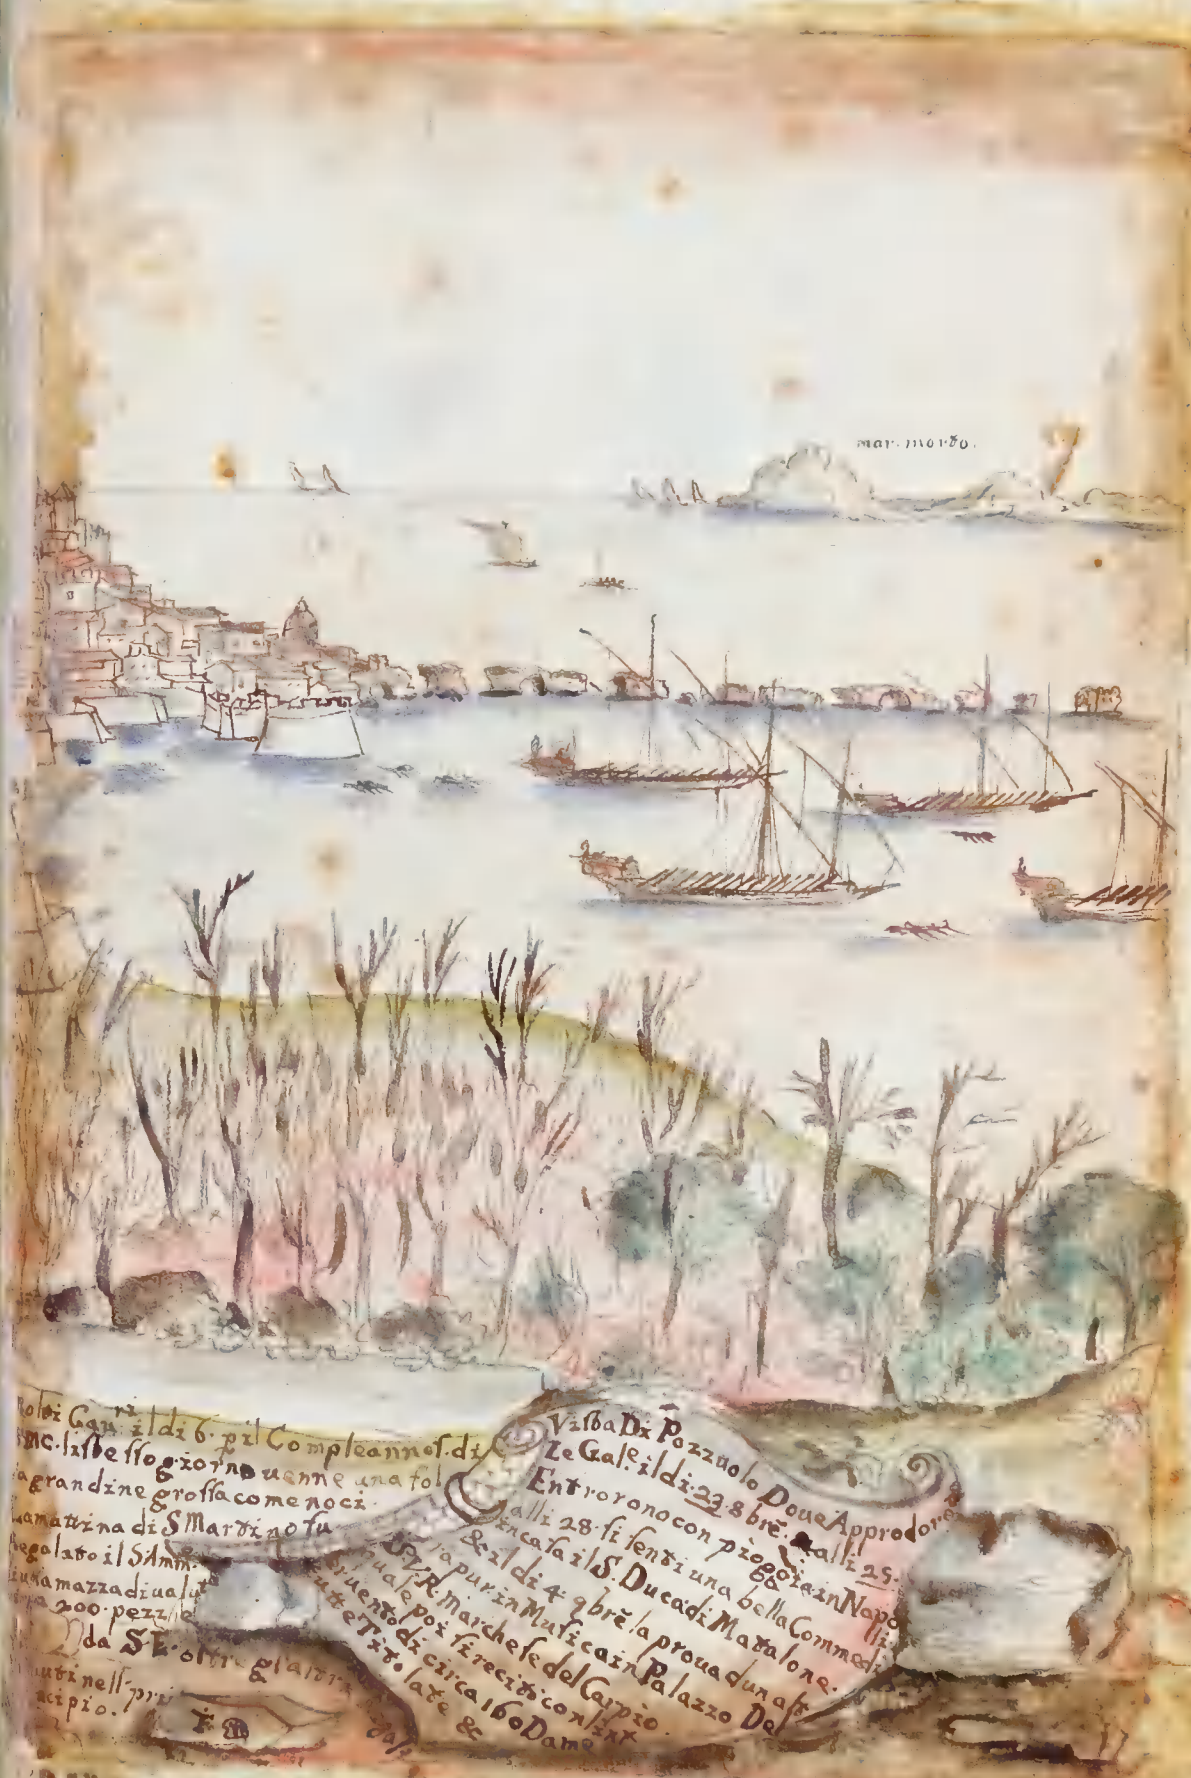 mar. morto.
Vista Di Pozzuolo Doue Approdoro
Le Gal.e il di. 23. 8bre. alli 25.
Entrorono con pioggia in Napo
alli 28. si senti una bella Commedi
in casa il S. Duca di Matalone.
& il di 4. 9bre. la proua dun alt
a pur in Musica in Palazzo Del
S. V. R. Marchese del Carpio.
quale poi si recito con int
uento di circa 160 Dame
tutte Titolate &
il di 6. p il Compleannos. di
MC. listesso giorno uenne una fol
a grandine grossa come noci.
La mattina di S Martino fu
Regalato il SAmm.
una mazza di ualu
200. pezze
da S. E. oltre gl'altri
uti nell pri
ncipio.
17